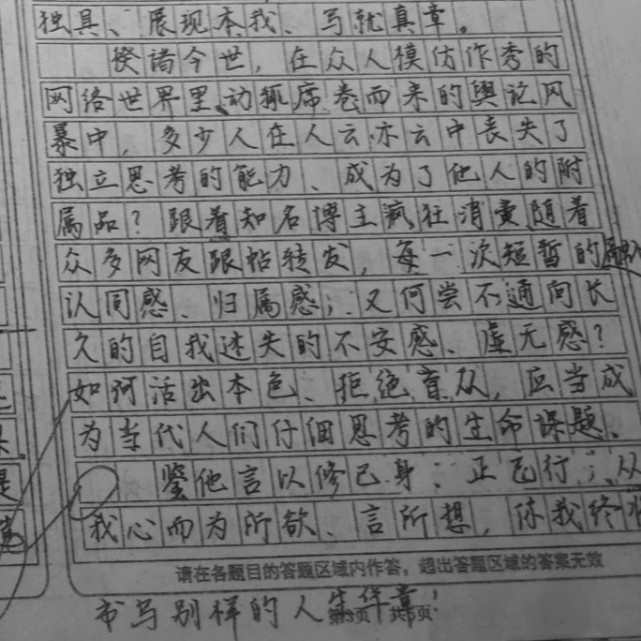 独具、展现本我、写就真章。
揆诸今世，在众人模仿作秀的
网络世界里，动辄席卷而来的舆论风
暴中，多少人在人云亦云中丧失了
独立思考的能力、成为了他人的附
属品？跟着知名博主疯狂消费随着
众多网友跟帖转发，每一次短暂的
认同感、归属感；又何尝不通向长
久的自我迷失的不安感、虚无感？
如何活出本色、拒绝盲从，应当成
为当代人们仔细思考的生命课题、
鉴他言以修己身；正己行；从
我心而为所欲、言所想，你我终
请在各题目的答题区域内作答，超出答题区域的答案无效
书写别样的人生华章！